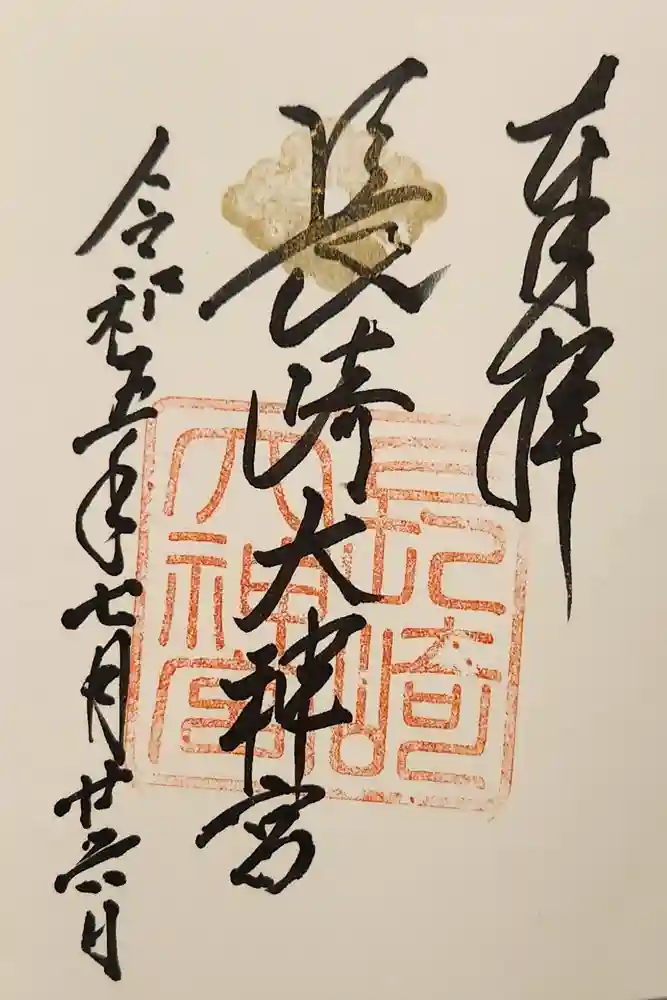 奉拝
長崎大神宮
令和五年七月廿六日
長崎
大神宮